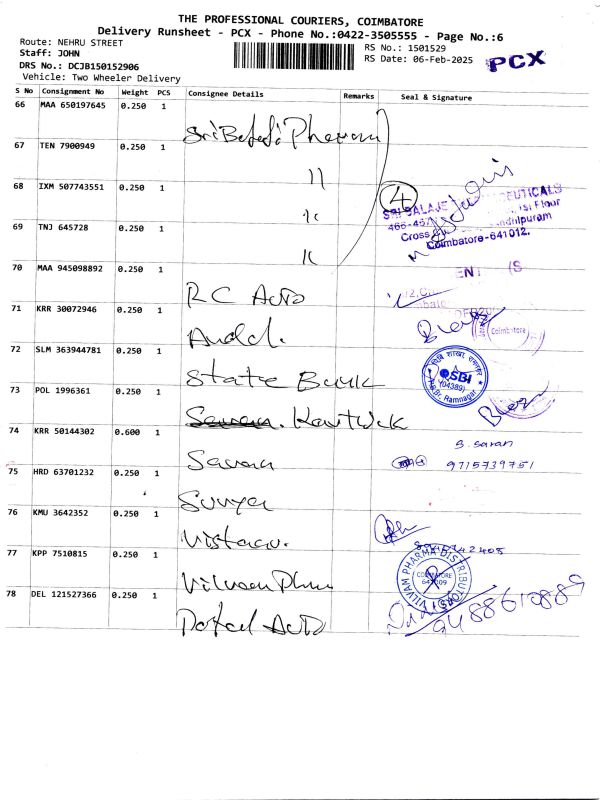 THE PROFESSIONAL COURIERS, COIMBATORE
Delivery Runsheet - PCX - Phone No.:0422-3505555 - Page No.:6
Route: NEHRU STREET
Staff: JOHN
DRS No.: DCJB150152906
Vehicle: Two Wheeler Delivery
RS No.: 1501529
RS Date: 06-Feb-2025
PCX
S No Consignment No Weight PCS Consignee Details Remarks Seal & Signature
66 MAA 650197645 0.250 1 Sri Balaji Pharma
67 TEN 7900949 0.250 1 11
68 IXM 507743551 0.250 1 4
SRI BALAJE
466-467
Cross
Coimbatore-641012.
69 TNJ 645728 0.250 1
70 MAA 945098892 0.250 1 RC Auto
71 KRR 30072946 0.250 1
Coimbatore
72 SLM 363944781 0.250 1 State Bank
SBI
(04589)
Br. Ramnagar
73 POL 1996361 0.250 1 Kartvck
74 KRR 50144302 0.600 1 Savan
S. Saran
9715739751
75 HRD 63701232 0.250 1 Surya
76 KMU 3642352 0.250 1
77 KPP 7510815 0.250 1
VILVAM PHARMA DISTRIBUTORS
COIMBATORE
78 DEL 121527366 0.250 1 Patel Auto
9488610889